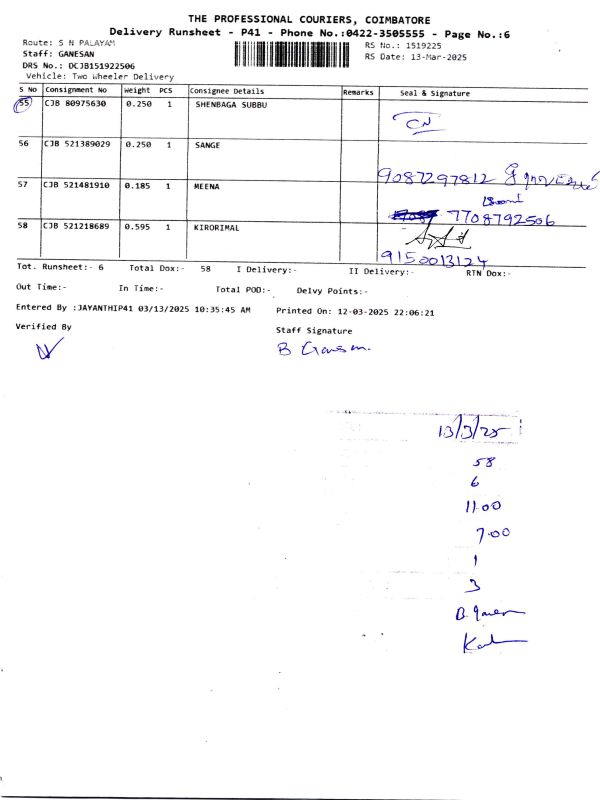 THE PROFESSIONAL COURIERS, COIMBATORE
Delivery Runsheet - P41 - Phone No.:0422-3505555 - Page No.:6
Route: S N PALAYAM
RS No.: 1519225
Staff: GANESAN
RS Date: 13-Mar-2025
DRS No.: DCJB151922506
Vehicle: Two Wheeler Delivery
S No Consignment No Weight PCS Consignee Details Remarks Seal & Signature
55 CJB 80975630 0.250 1 SHENBAGA SUBBU
CN
56 CJB 521389029 0.250 1 SANGE
9087297812
57 CJB 521481910 0.185 1 MEENA
7708792506
58 CJB 521218689 0.595 1 KIRORIMAL
9150013124
Tot. Runsheet:- 6 Total Dox:- 58 I Delivery:- II Delivery:- RTN Dox:-
Out Time:- In Time:- Total POD:- Delvy Points:-
Entered By :JAYANTHIP41 03/13/2025 10:35:45 AM Printed On: 12-03-2025 22:06:21
Verified By
Staff Signature
13/3/25
58
6
11.00
7.00
1
3